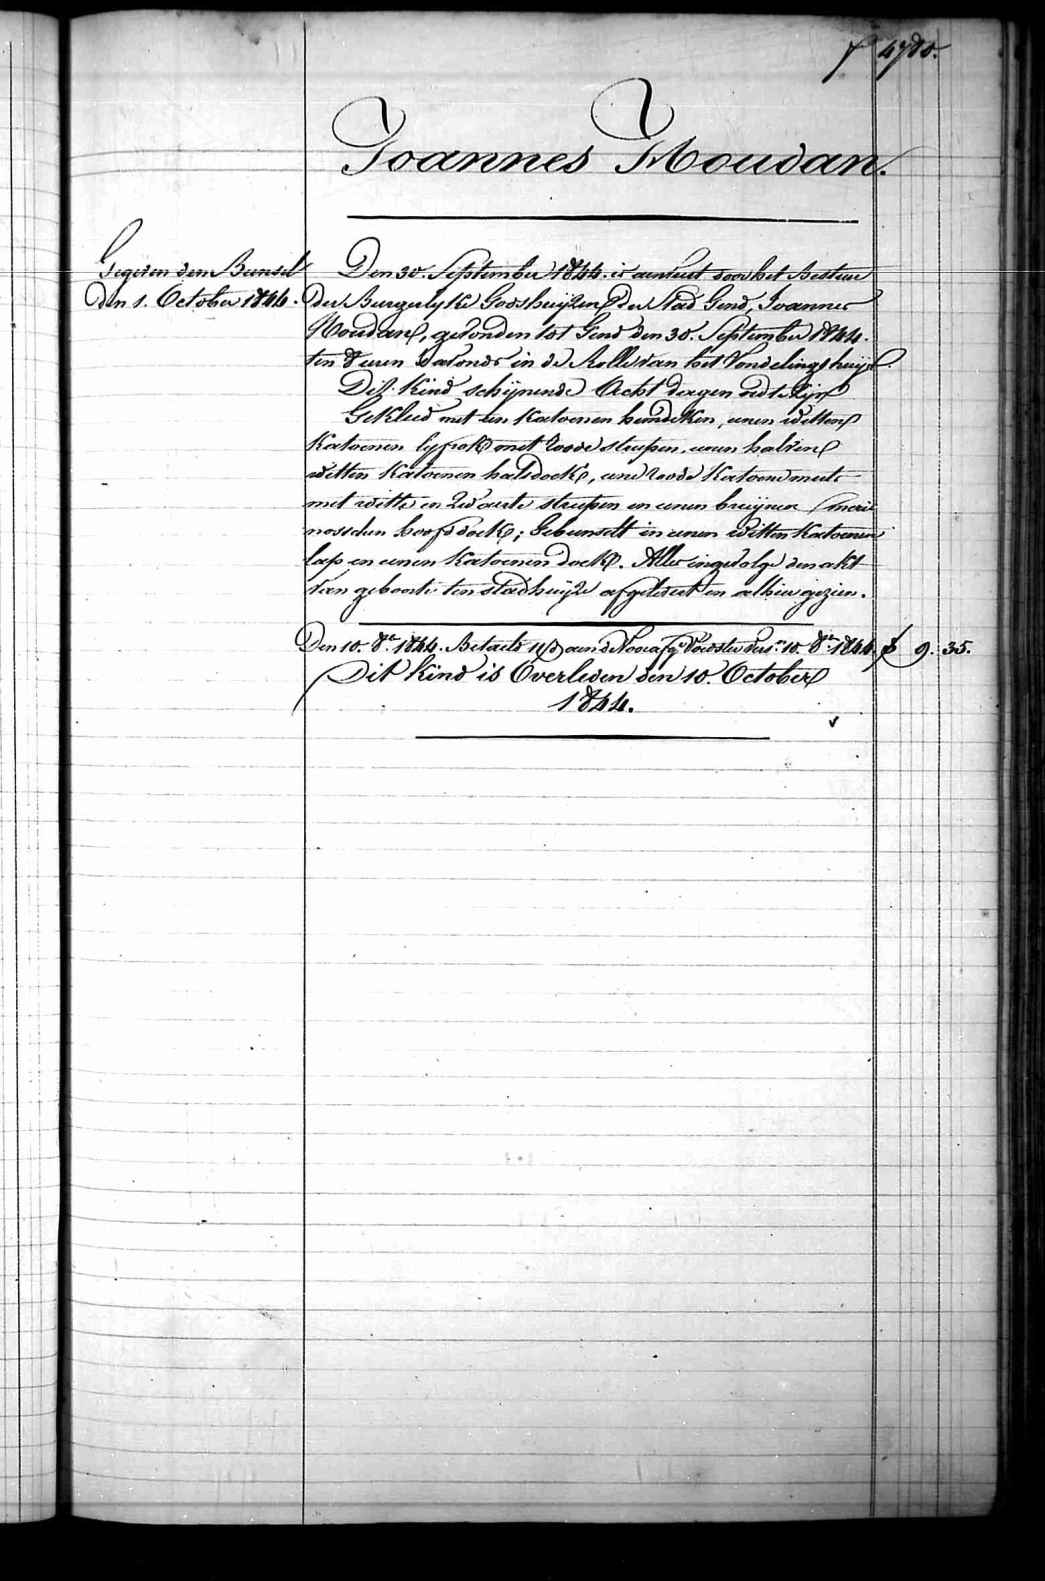 f 478v.
Joannes Moudan.
Gegeven dem Bunsel
den 1. October 1844.
Den 30. September 1844. is aenveert door het Bestuer
der Burgerlyke Godshuijzen der Stad Gend, Joannes
Moudan, gevonden tot Gend den 30. September 1844.
ten 8 uren s'avonds in de Rolle van het Vondelingshuijs.
Dit Kind schijnende Acht dagen oud te zijn
Gekleed met een Katoenen hemdeken, eenen witten
Katoenen lyfrok met roode streepen, eenen halven
witten Katoenen halsdoek, eene roode Katoene muts
met witte en zwarte streepen en eenen bruijnen meri-
nosschen hoofddoek; Gebunselt in eenen witten Katoenen
lap en eenen Katoenen doek. Alles ingevolge den akt
van geboorte ten stadhuijze afgeleverd en alhier gezien.
Den 10. 8re. 1844. Betaeld aen de Voedster 10. 8re 1844. f 9. 35.
Dit Kind is Overleden den 10. October
1844.